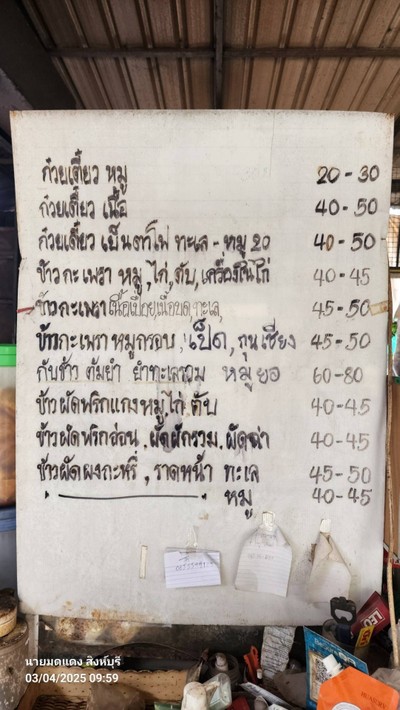 ก๋วยเตี๋ยว หมู 20-30
ก๋วยเตี๋ยว เนื้อ 40-50
ก๋วยเตี๋ยว เย็นตาโฟ ทะเล - หมู 20 40-50
ข้าวกะเพรา หมู, ไก่, ตับ, เครื่องในไก่ 40-45
ข้าวกะเพรา เนื้อเปื่อย, เนื้อบด, ทะเล 45-50
ข้าวกะเพรา หมูกรอบ, เป็ด, กุนเชียง 45-50
กับข้าว ต้มยำ ยำทะเลรวม หมูยอ 60-80
ข้าวผัดพริกแกง หมู, ไก่, ตับ 40-45
ข้าวผัดพริกอ่อน, ผัดผักรวม, ผัดฉ่า 40-45
ข้าวผัดผงกะหรี่, ราดหน้า ทะเล 45-50
หมู 40-45
LEO
นายมดแดง สิงห์บุรี
03/04/2025 09:59